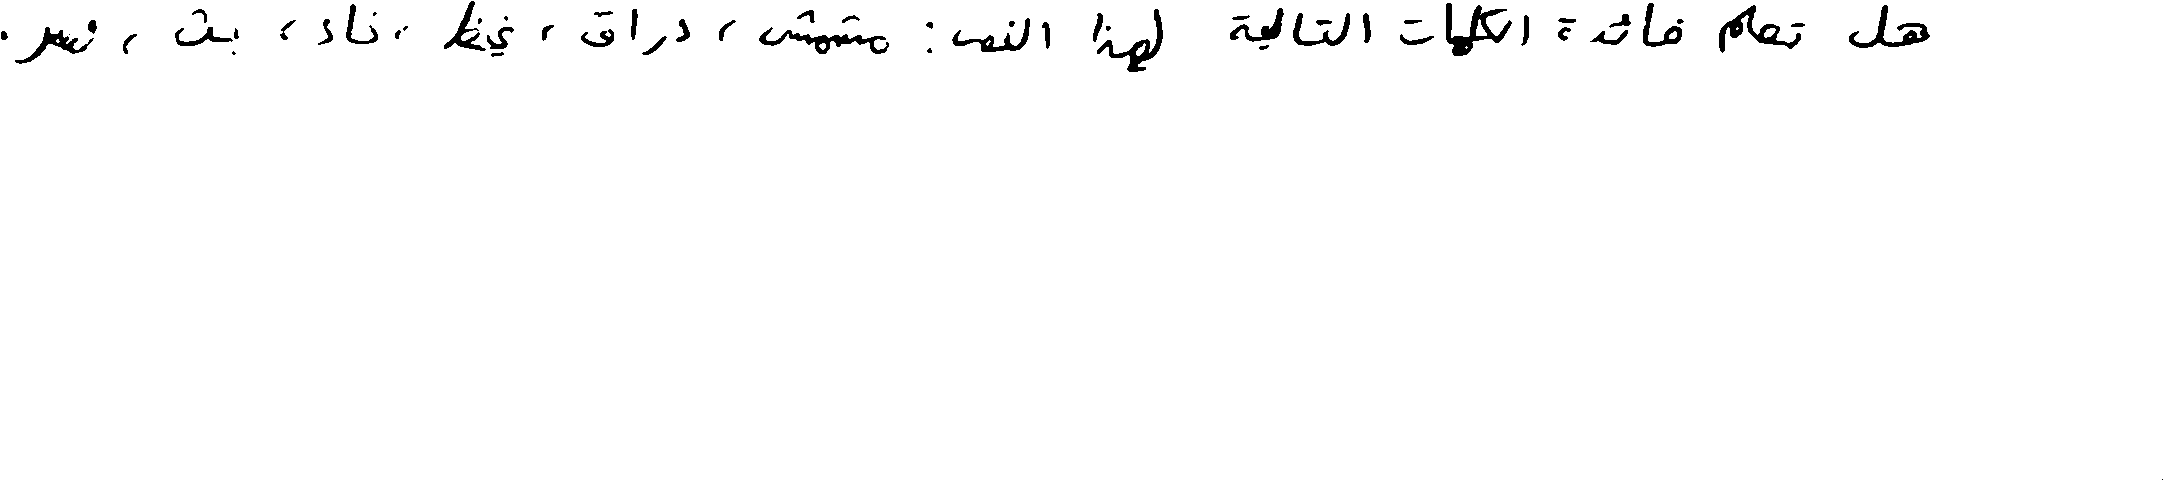 هل تعلم فائدة الكلمات التالية لهذا النص: مشمش، دراق، غيظ، ناد، بت، نسر.